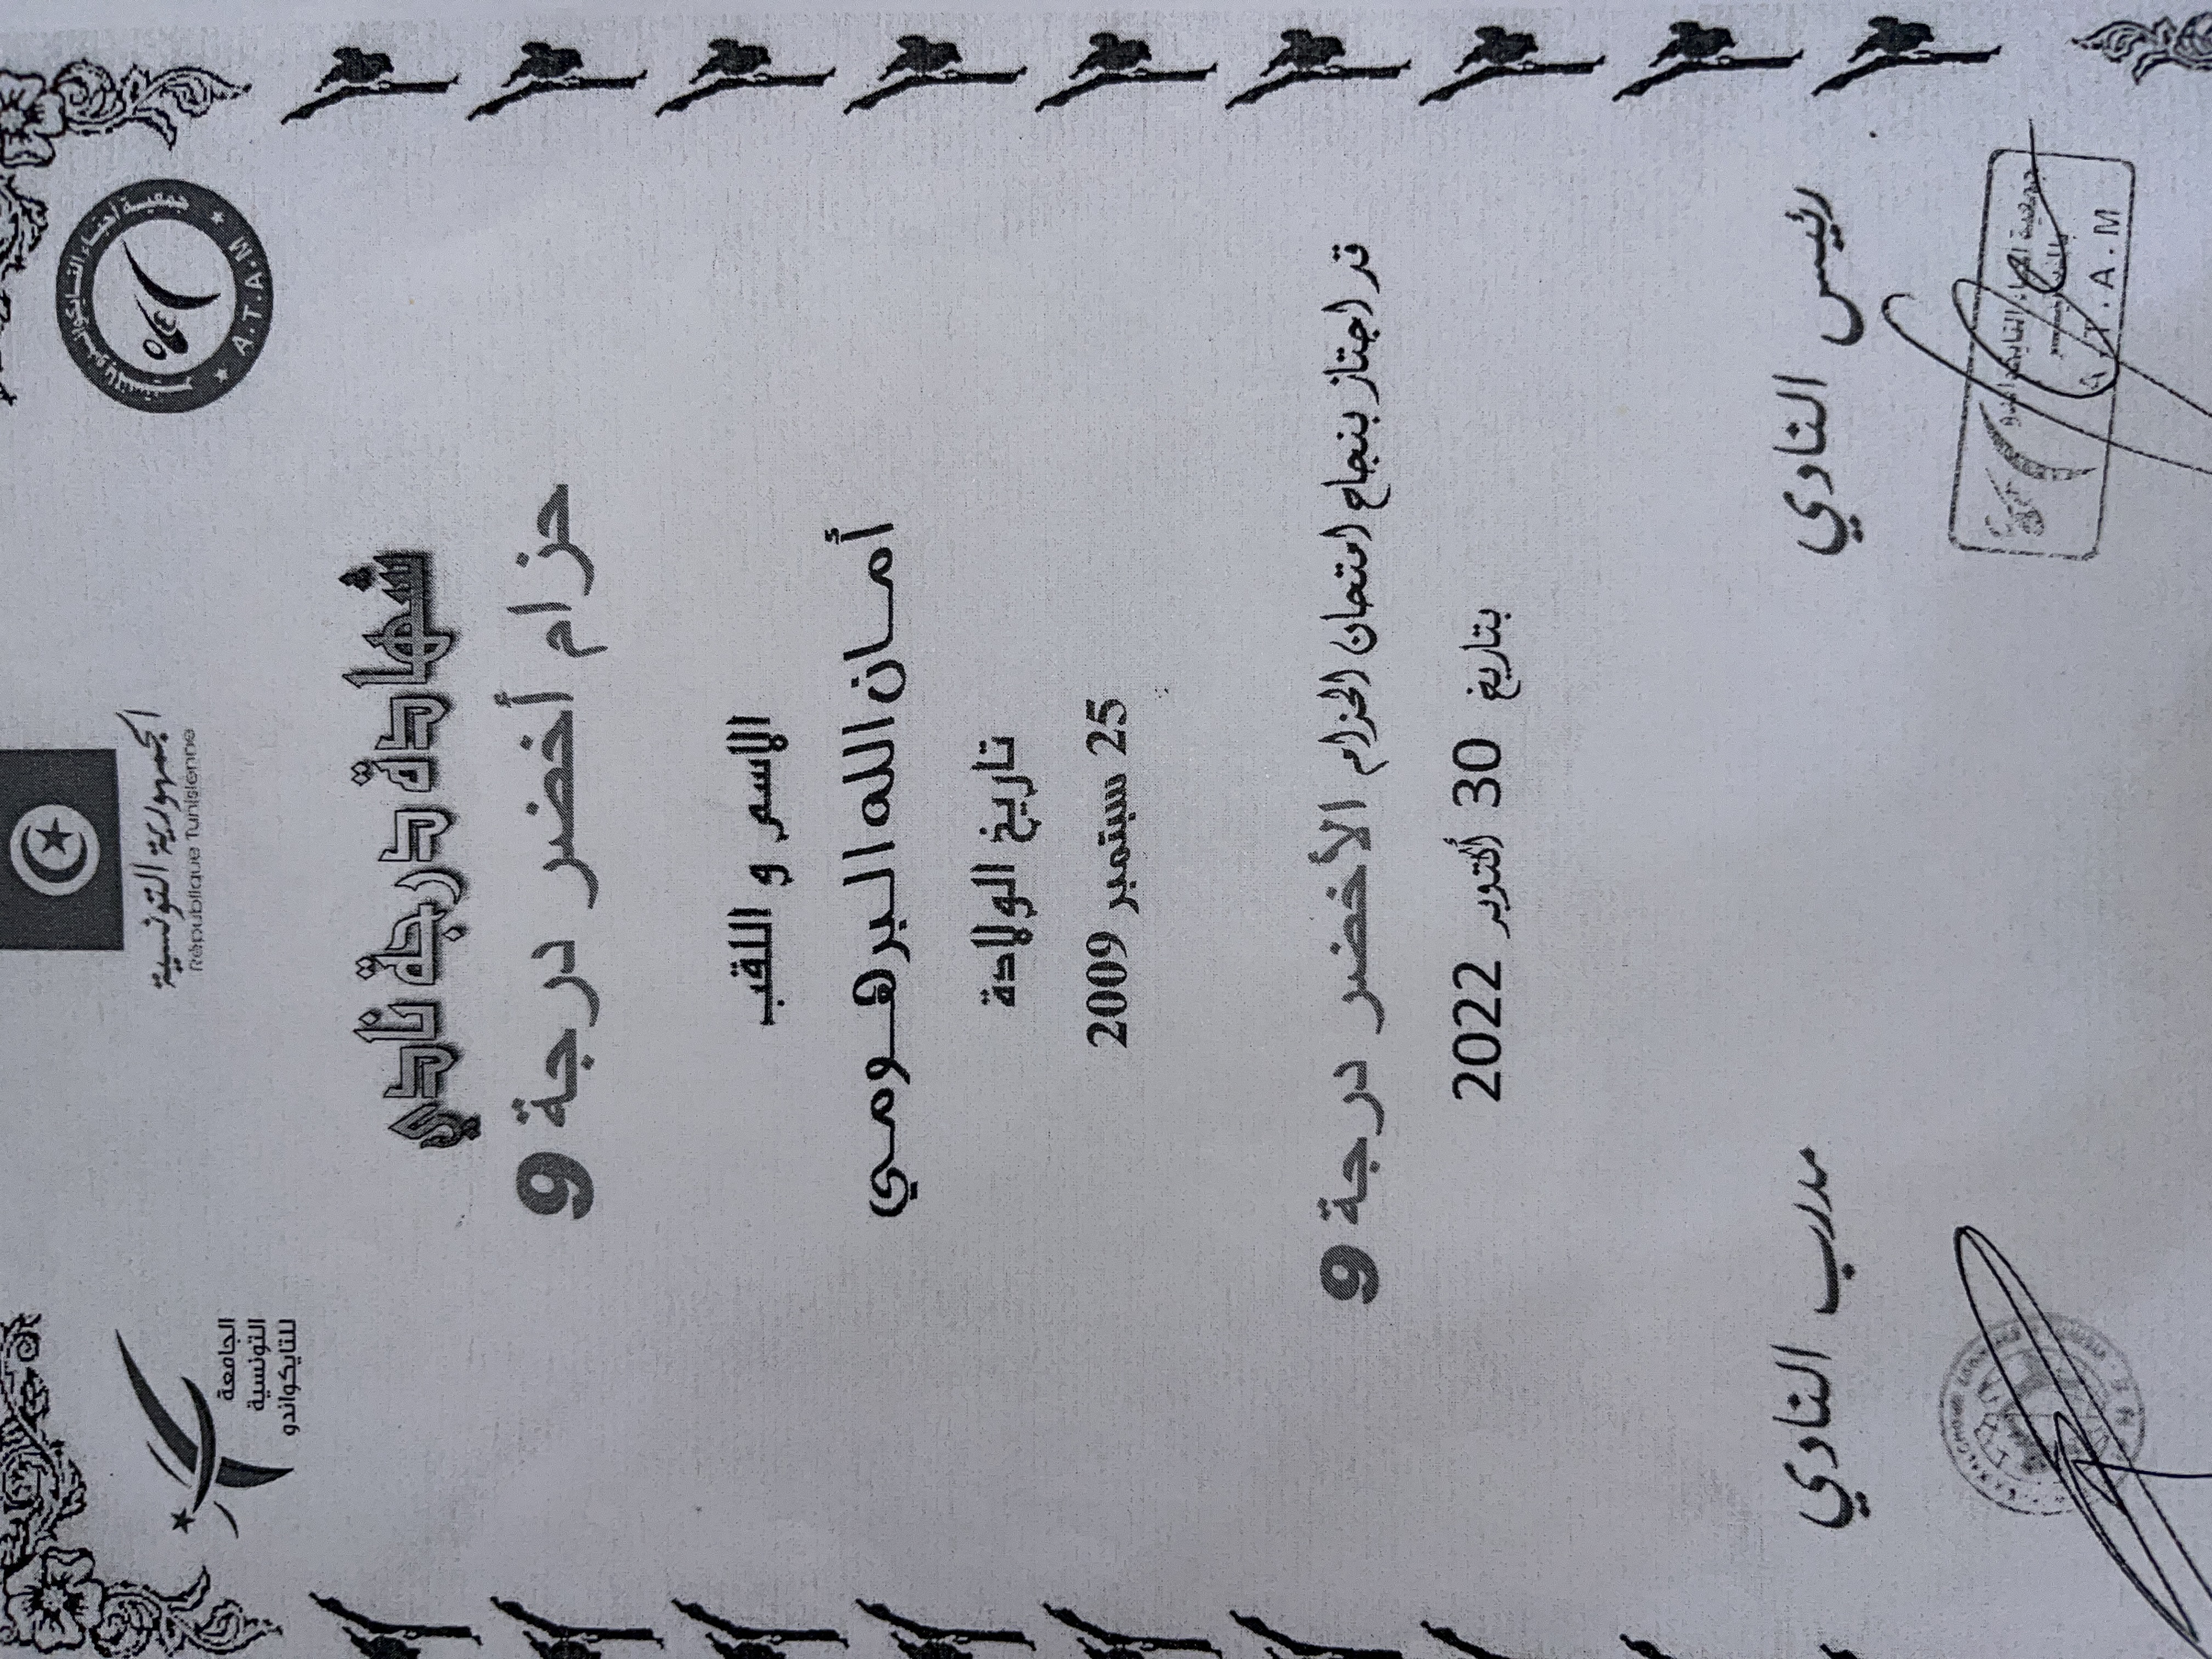 الجمهورية التونسية
République Tunisienne
جمعية أحباء التايكواندو بالمنستير
A.T.A.M
الجامعة
التونسية
للتايكواندو
شهادة درجة نادي
حزام أخضر درجة 9
الاسم و اللقب
أمان الله البرهومي
تاريخ الولادة
25 سبتمبر 2009
قد اجتاز بنجاح امتحان الحزام الأخضر درجة 9
بتاريخ 30 أكتوبر 2022
رئيس النادي
مدرب النادي
A.T.A.M